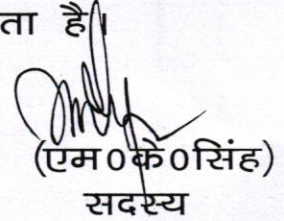 ता है।
(एम0के0सिंह)
सदस्य